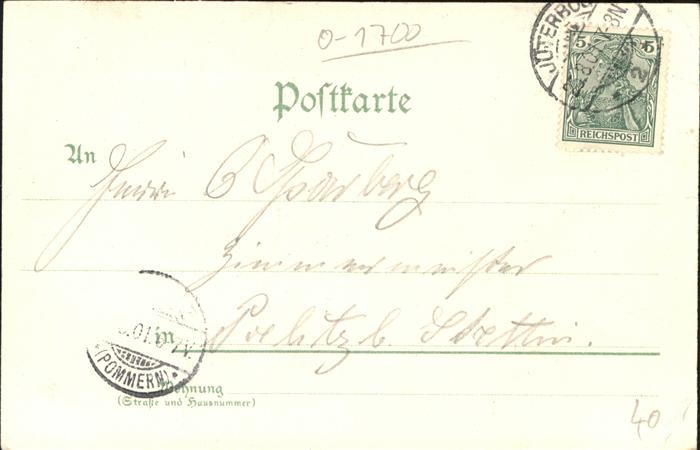 O-1700
JÜTERBOG
2
5 5
REICHSPOST
Postkarte
An
Herrn C Sparberg
Zimmermeister
in Poelitz b. Stettin.
01
(POMMERN)
Wohnung
(Straße und Hausnummer)
40